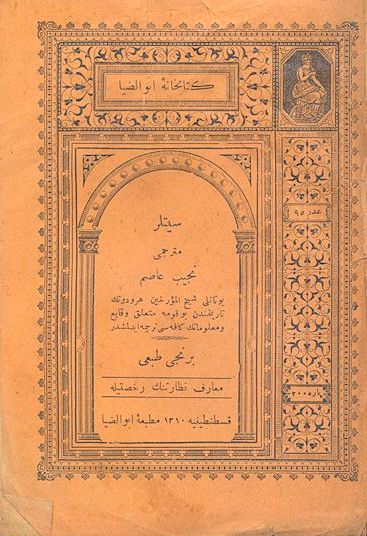 كتابخانهٔ ابوالضيا
عدد ٩٥
سيتلر
مترجمى
نجيب عاصم
يونانلى شيخ المؤرخين هرودوتك
تاريخندن بو قومه متعلق وقايع
و معلوماتك كافه‌سى ترجمه ايدلمشدر
برنجى طبعى
معارف نظارتنك رخصتيله
قسطنطينيه ١٣١٠ مطبعهٔ ابوالضيا